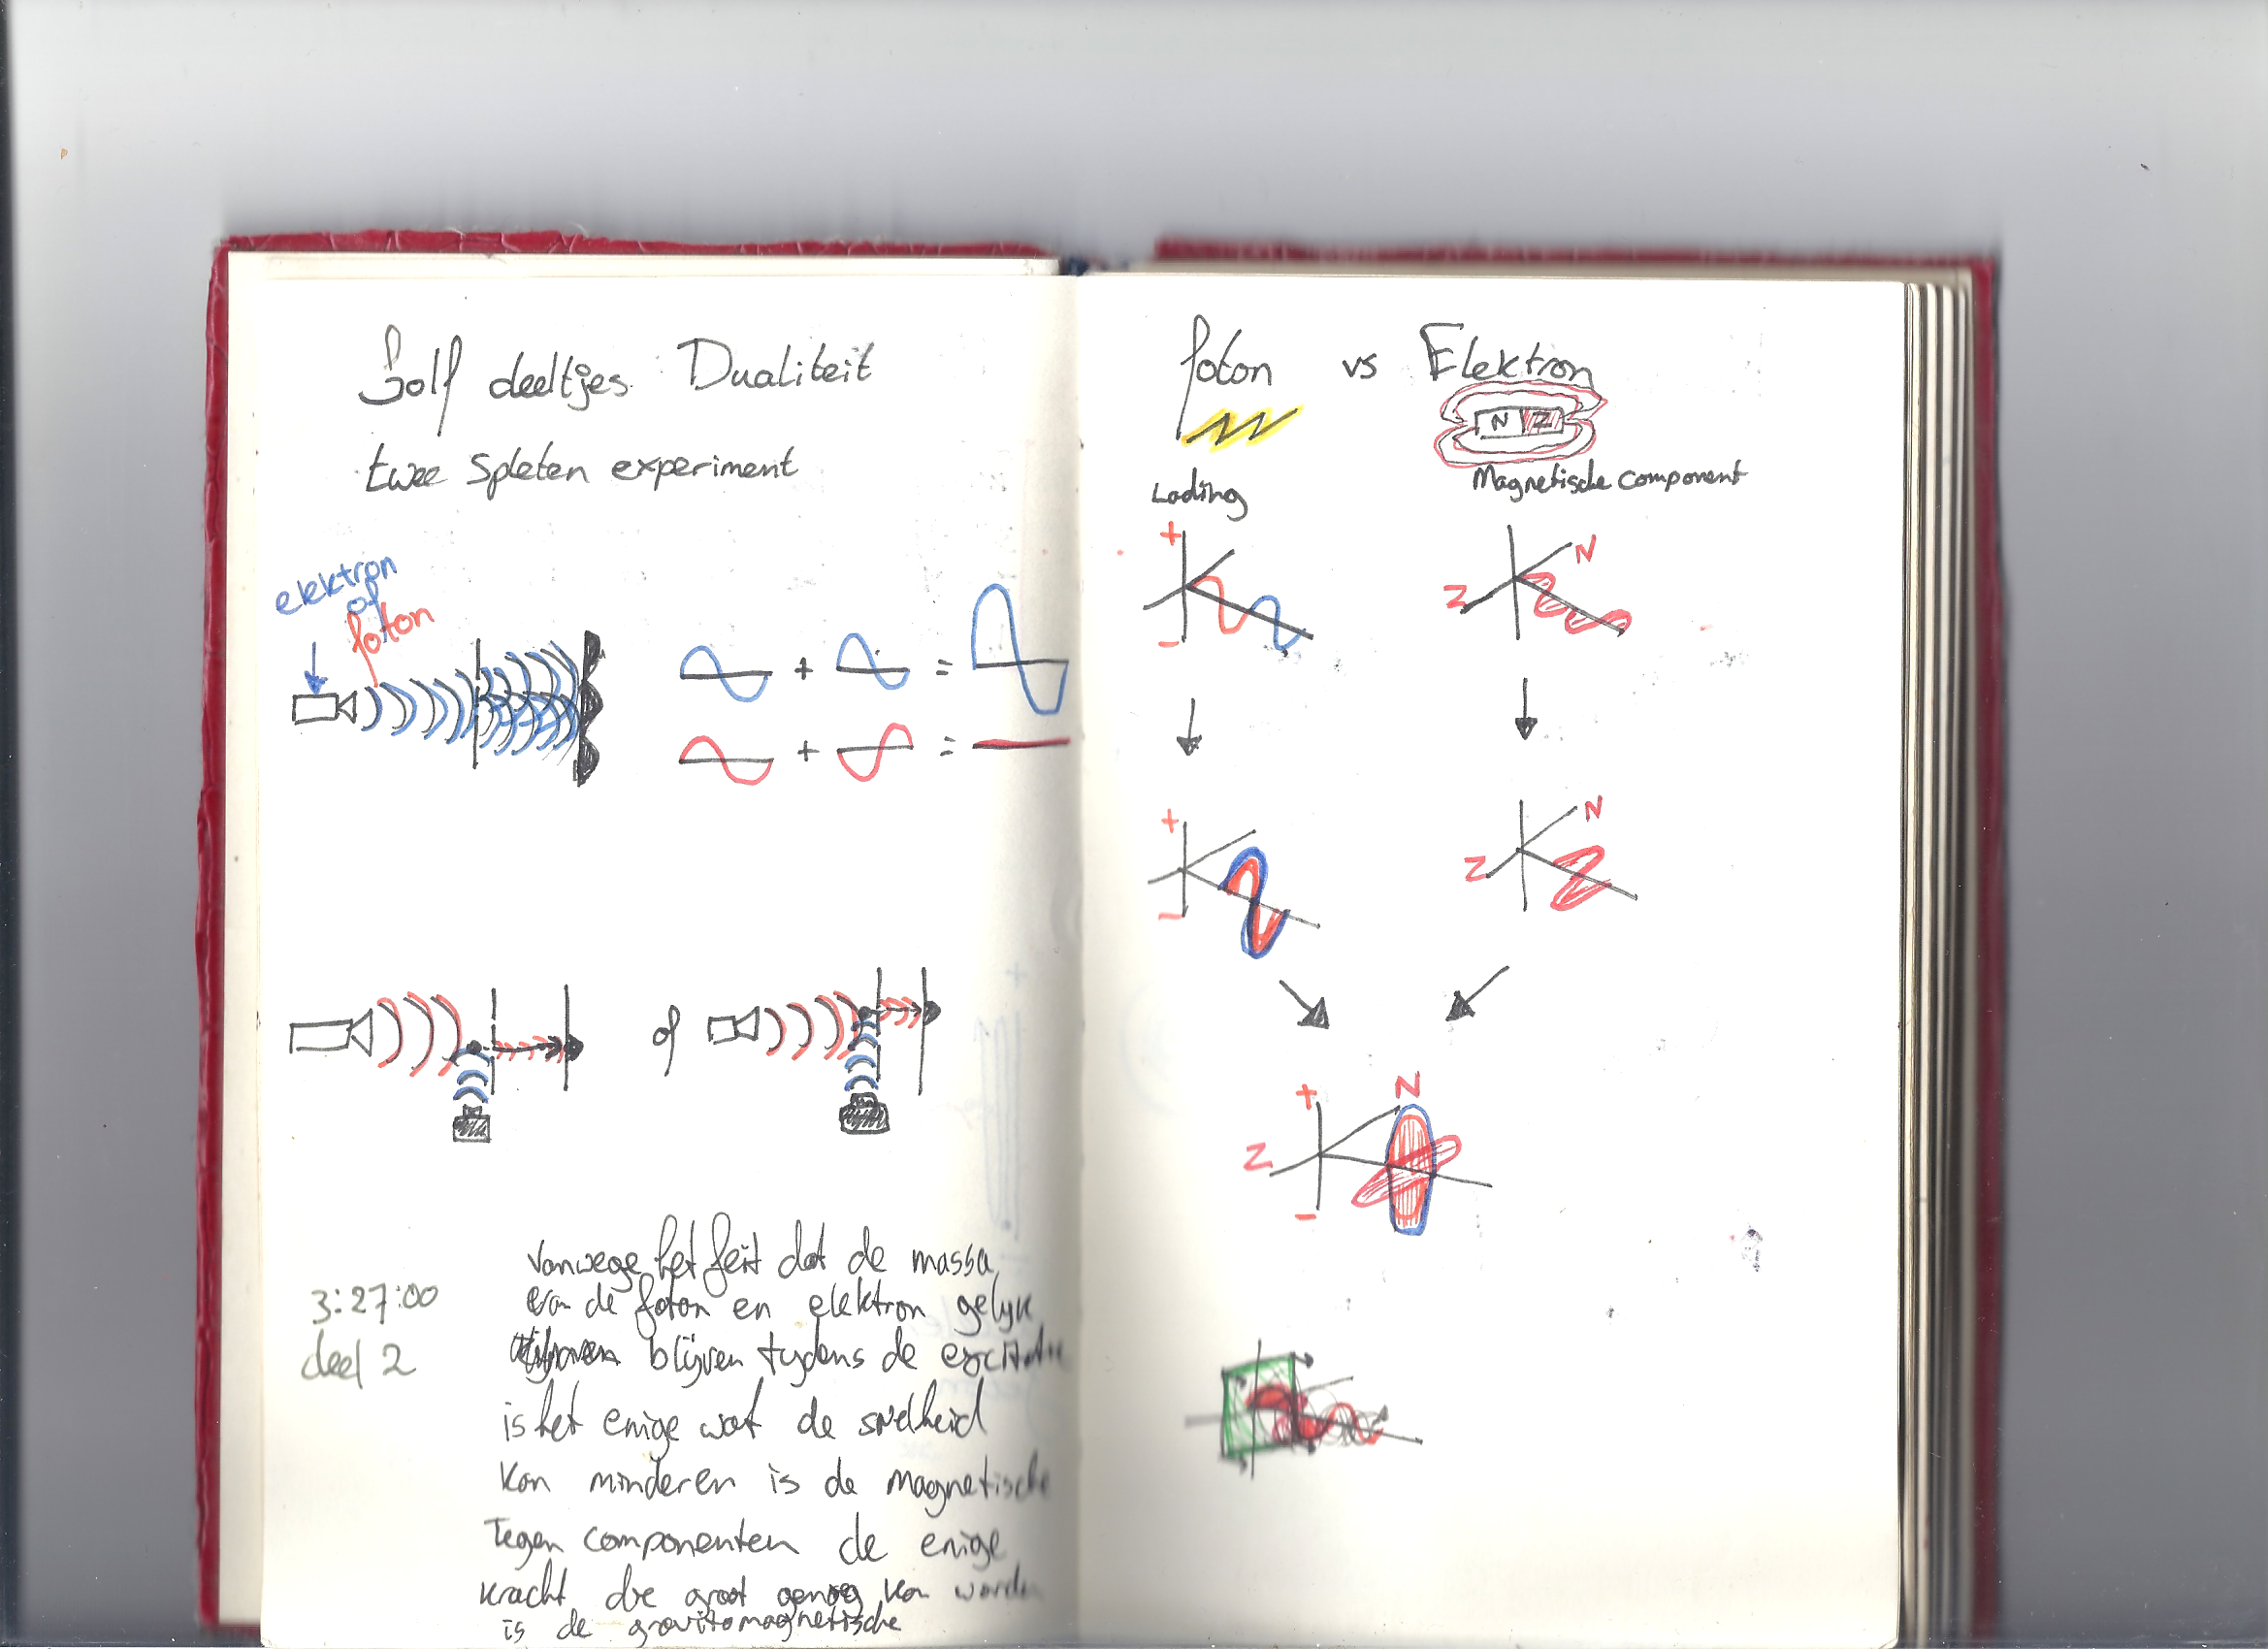 Golf deeltjes Dualiteit
twee Spleten experiment
elektron
of
foton
+ =
+ =
of
3:27:00
deel 2
Vanwege het feit dat de massa
van de foton en elektron gelijk
blijven tijdens de excitatie
is het enige wat de snelheid
kan minderen is de magnetische
Tegen componenten de enige
kracht die groot genoeg kan worden
is de gravitomagnetische
foton vs Elektron
N Z
Lading
Magnetische component
+
-
N
Z
+
-
N
Z
+
N
Z
-